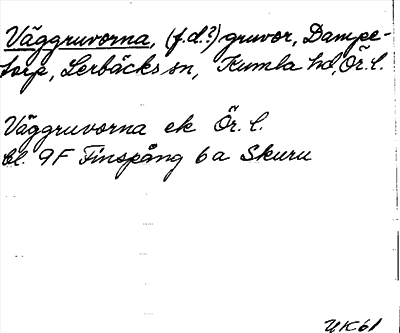 Väggruvorna, (f.d.?) gruvor, Dampe-
torp, Lerbäcks sn, Kumla hd, Ör. l.
Väggruvorna ek Ör. l.
bl. 9F Finspång 6a Skuru
UK61